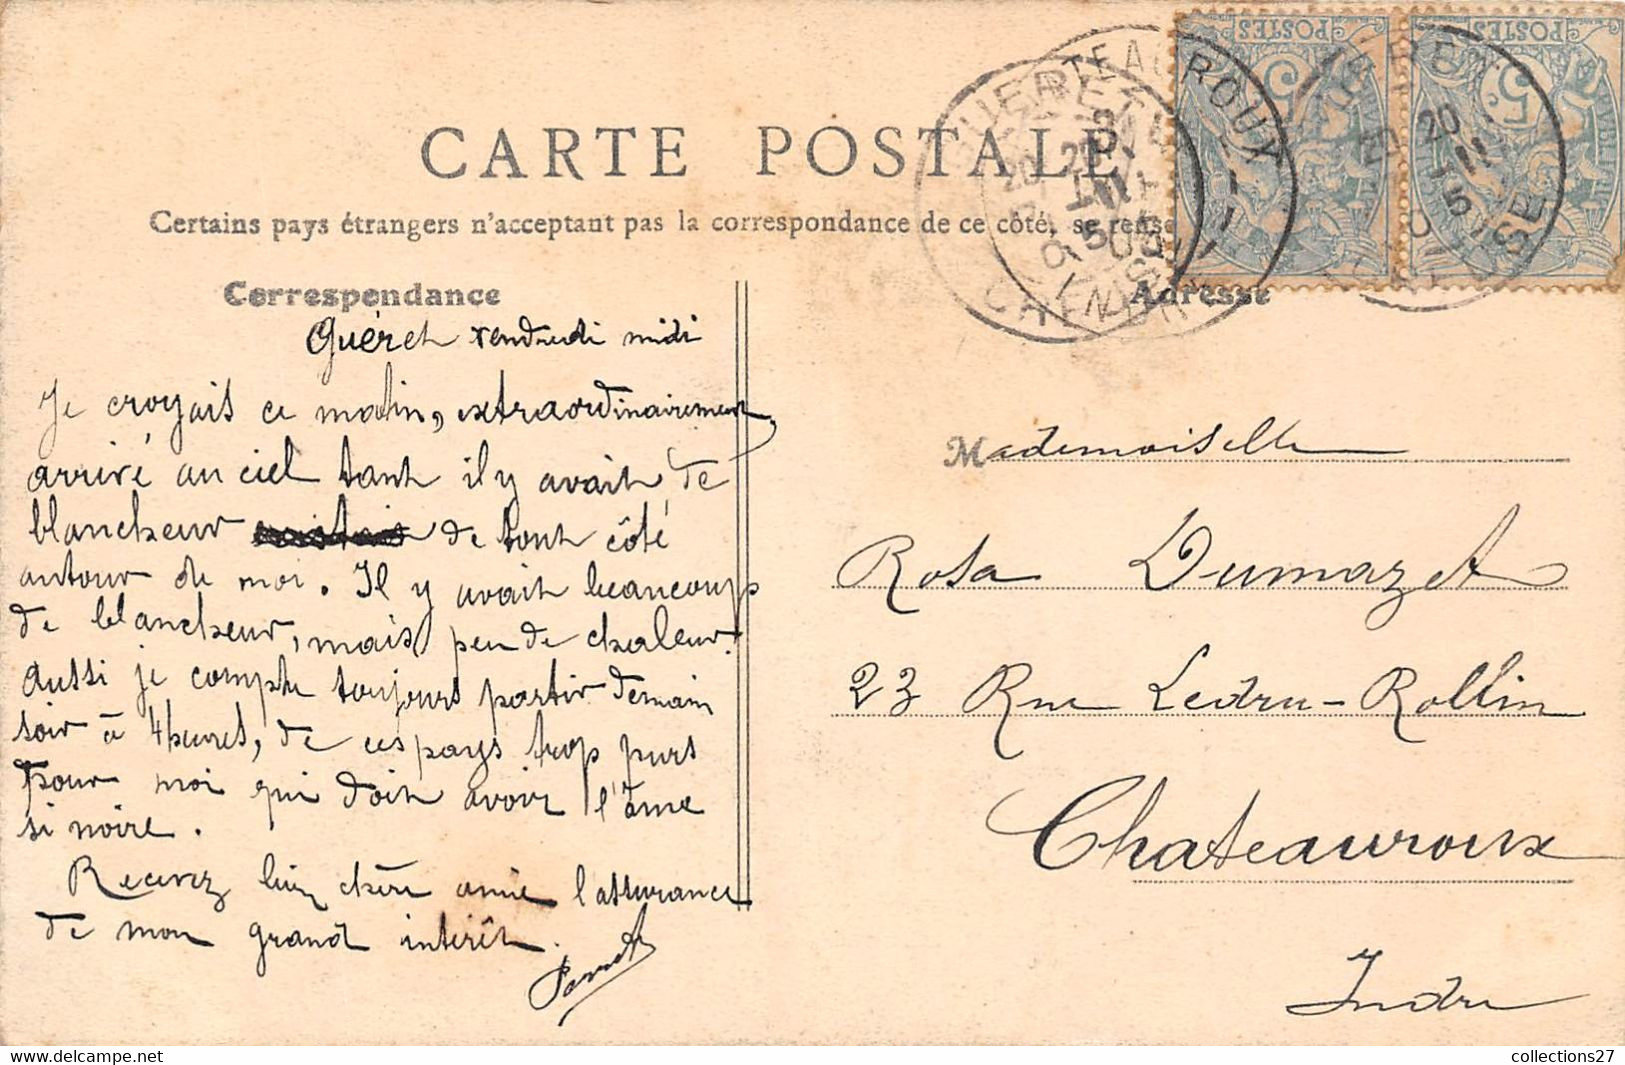 CARTE POSTALE
Certains pays étrangers n'acceptent pas la correspondance de ce côté, se rense
Correspondance
Adresse
POSTES
POSTES
5
5
GUERET
CHATEAUROUX
20
CREUSE
INDRE
Guéret vendredi midi
Je croyais ce matin, extraordinairement
arrivé au ciel tant il y avait de
blancheur de tout côté
autour de moi. Il y avait beaucoup
de blancheur, mais peu de chaleur.
Aussi je compte toujours partir demain
soir à 4 heures, de ces pays trop purs
pour moi qui doit avoir l'âme
si noire.
Recevez bien chère amie l'assurance
de mon grand intérêt.
Mademoiselle
Rosa Dumazet
23 Rue Ledru-Rollin
Chateauroux
Indre
collections27